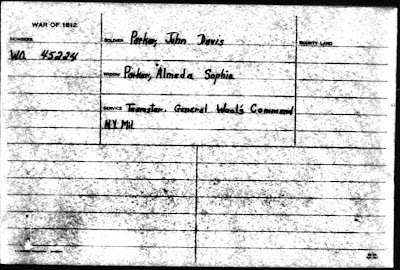 WAR OF 1812
NUMBERS
W.O. 45224
SOLDIER Parker, John Davis
BOUNTY LAND
WIDOW Parker, Almeda Sophia
SERVICE Teamster. General Wool's Command
N.Y. Mil.